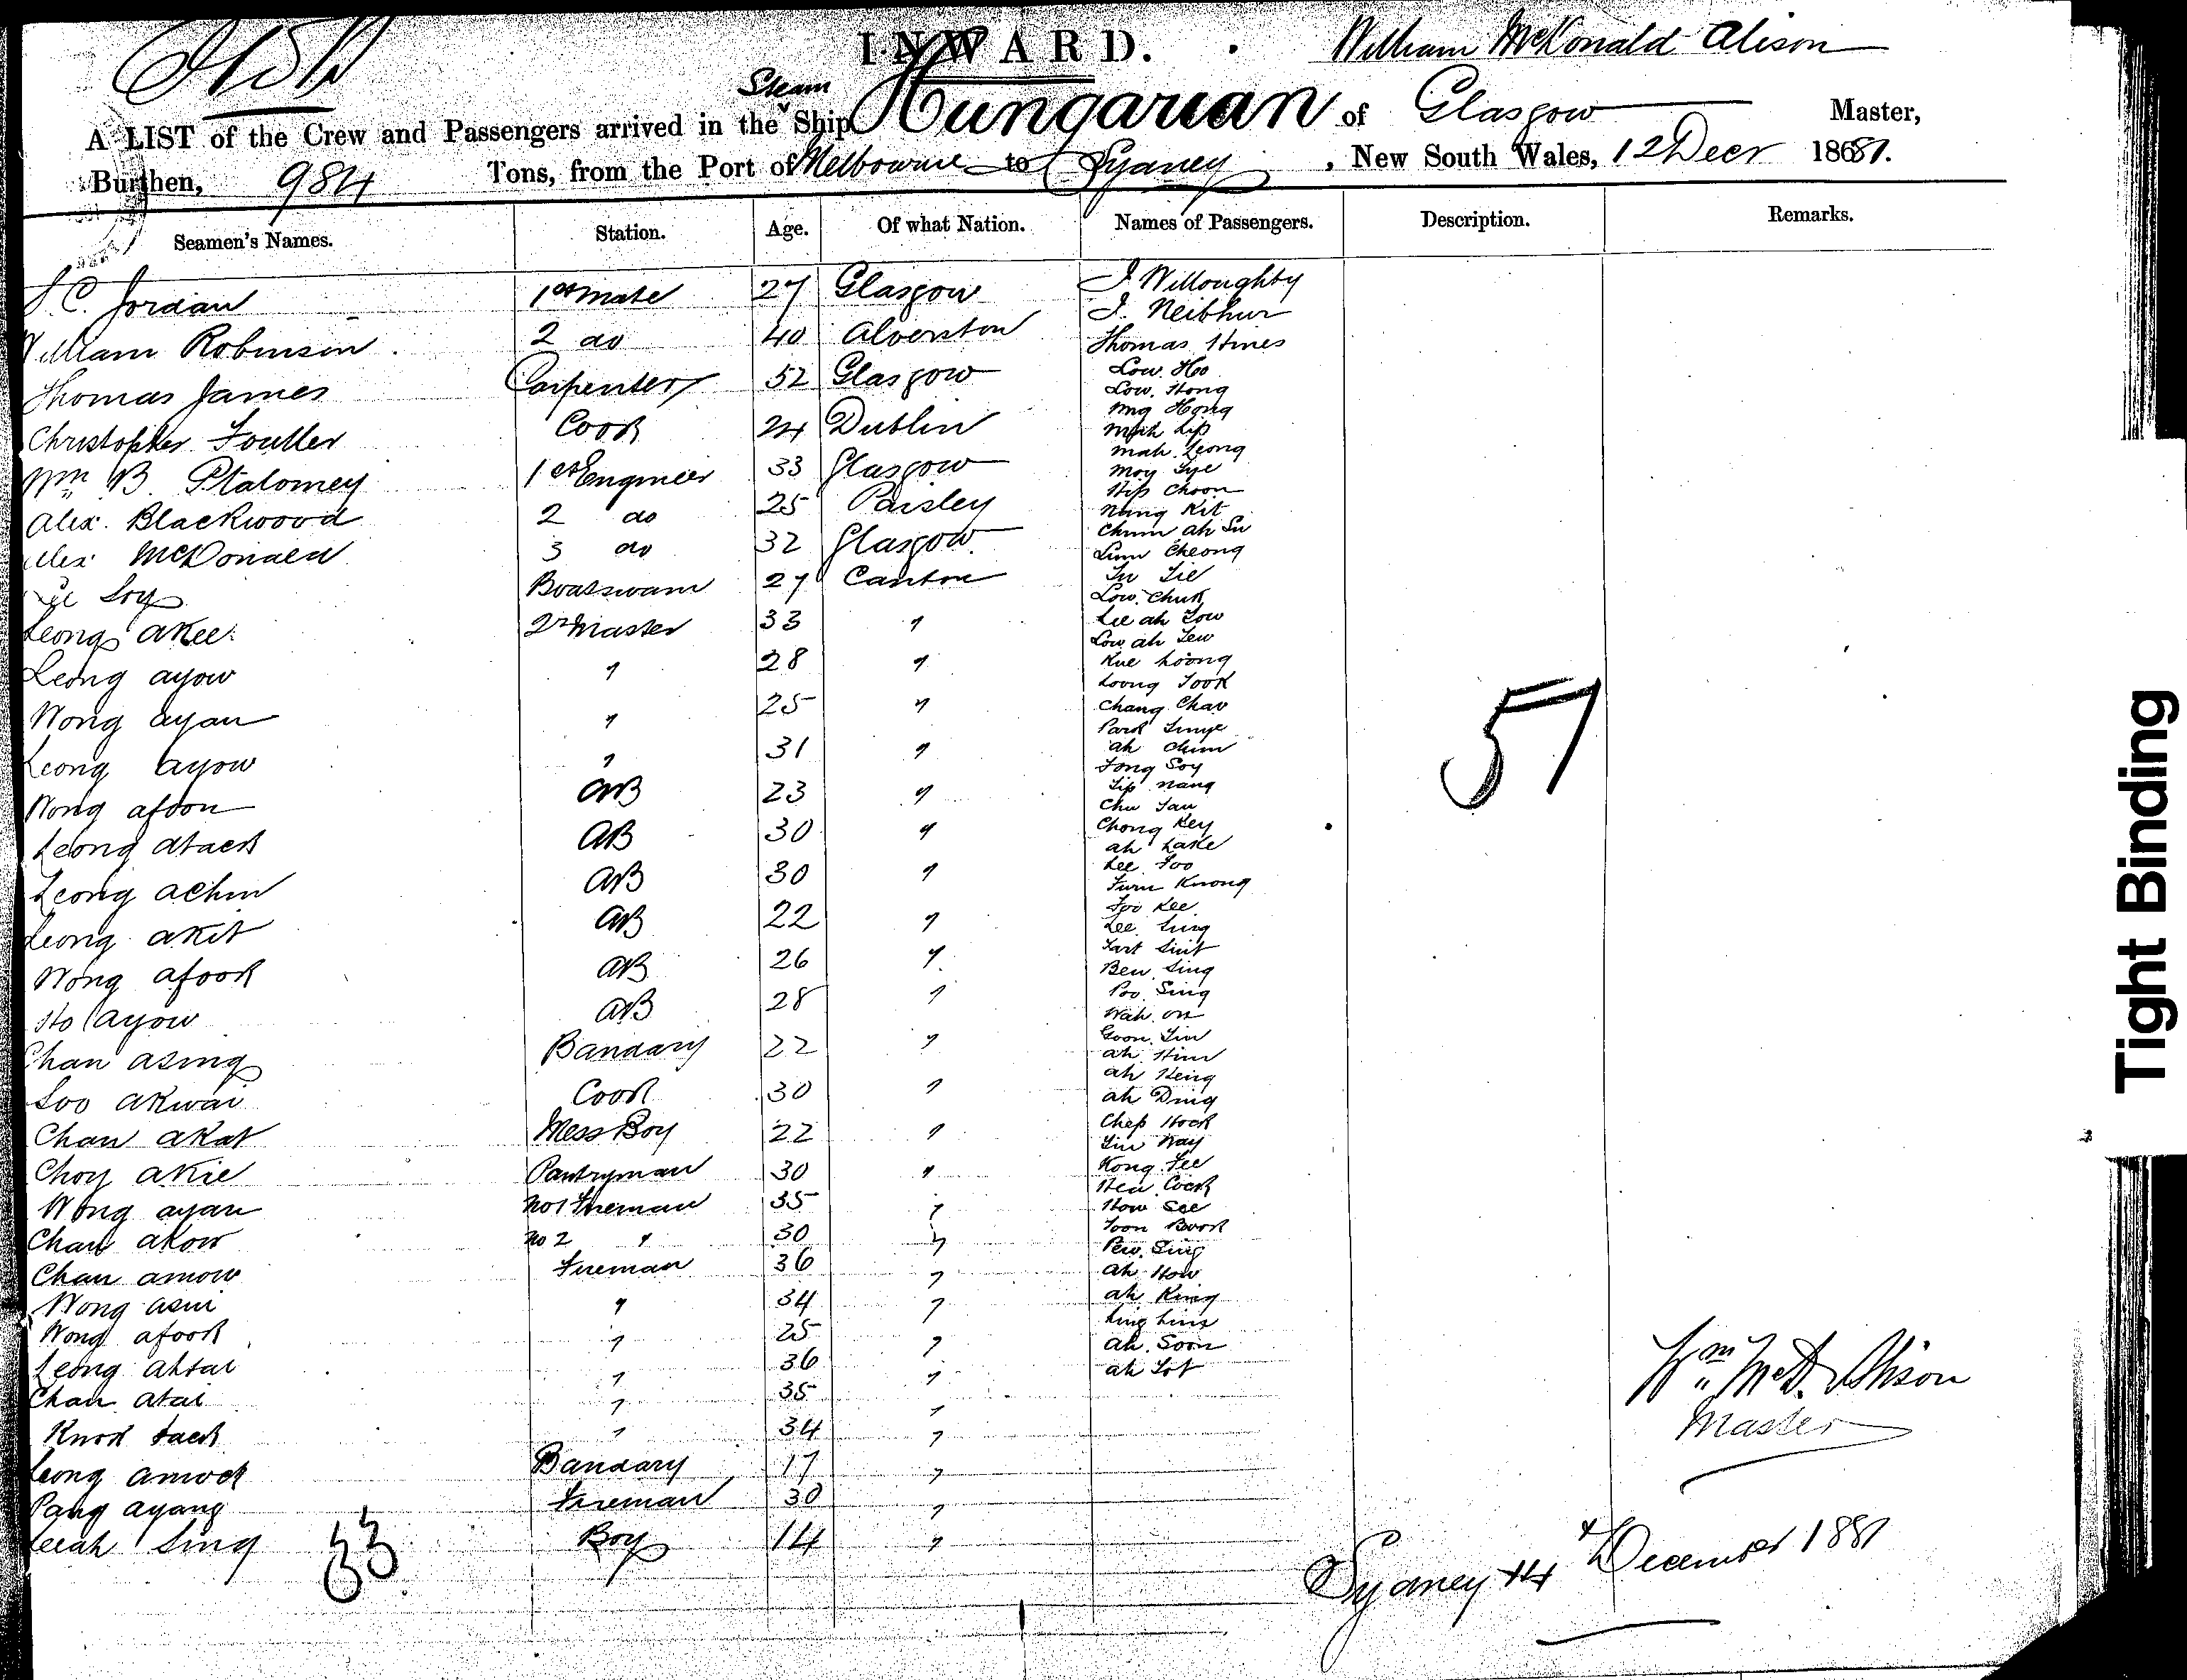 INWARD.
William McKonald Alison
A LIST of the Crew and Passengers arrived in the Steam Ship Hungarian of Glasgow Master,
Burthen, 984 Tons, from the Port of Melbourne to Sydney, New South Wales, 12 Decr 1881.
Seamen's Names. Station. Age. Of what Nation. Names of Passengers. Description. Remarks.
C. Jordan 1st mate 27 Glasgow
William Robinson 2 do 40 Alverston
Thomas James Carpenter 52 Glasgow
Christopher Foutler Cook 24 Dublin
Wm B. Ptalomey 1st Engineer 33 Glasgow
Alex. Blackwood 2 do 25 Paisley
Alex McDonald 3 do 32 Glasgow
Soy Boatswain 27 Canton
Leong Akee 2r Master 33 "
Leong ayow " 28 "
Wong ayan " 25 "
Leong ayow " 31 "
Wong afoon AB 23 "
Leong atack AB 30 "
Leong achin AB 30 "
Leong akit AB 22 "
Wong afook AB 26 "
Ho ayow AB 28 "
Chan asing Bandary 22 "
Soo akwai Cook 30 "
Chan akat Mess Boy 22 "
Choy akie Pantryman 30 "
Wong ayan No 1 Fireman 35 "
Chan akow No 2 " 30 "
Chan amow Fireman 36 "
Wong asui " 34 "
Wong afook " 25 "
Leong ahtai " 36 "
Chan atai " 35 "
Knok tack " 34 "
Leong amock Bandary 17 "
Pang ayang Fireman 30 "
Leeah Sing Boy 14 "
33
J. Willoughby
J. Neibhur
Thomas Hines
Low. Hoo
Low. Hong
Ming Hong
Mah Lip
Mah. Leong
Moy Tye
Hip Choon
Nang Kit
Chum ah Su
Lum Cheong
Low. Chuk
Lee ah Low
Low ah Tew
Kue Loong
Loong Took
Chang Chao
ah chim
Tong Soy
Lip nang
Chu Tau
Chong Key
ah Lake
Lee Foo
Furn Knong
Foi Kee
Lee Sing
Ben Sing
Poo Sing
Wah on
Goon Lin
ah Him
ah Heng
ah Ding
Chep Hock
Lin Way
Kong Fee
Hea Cock
How See
Toon Book
Pew. Sing
ah How
ah King
ah. Soon
ah Lot
57
Wm McD. Alison
Master
Sydney 14 December 1881
Tight Binding